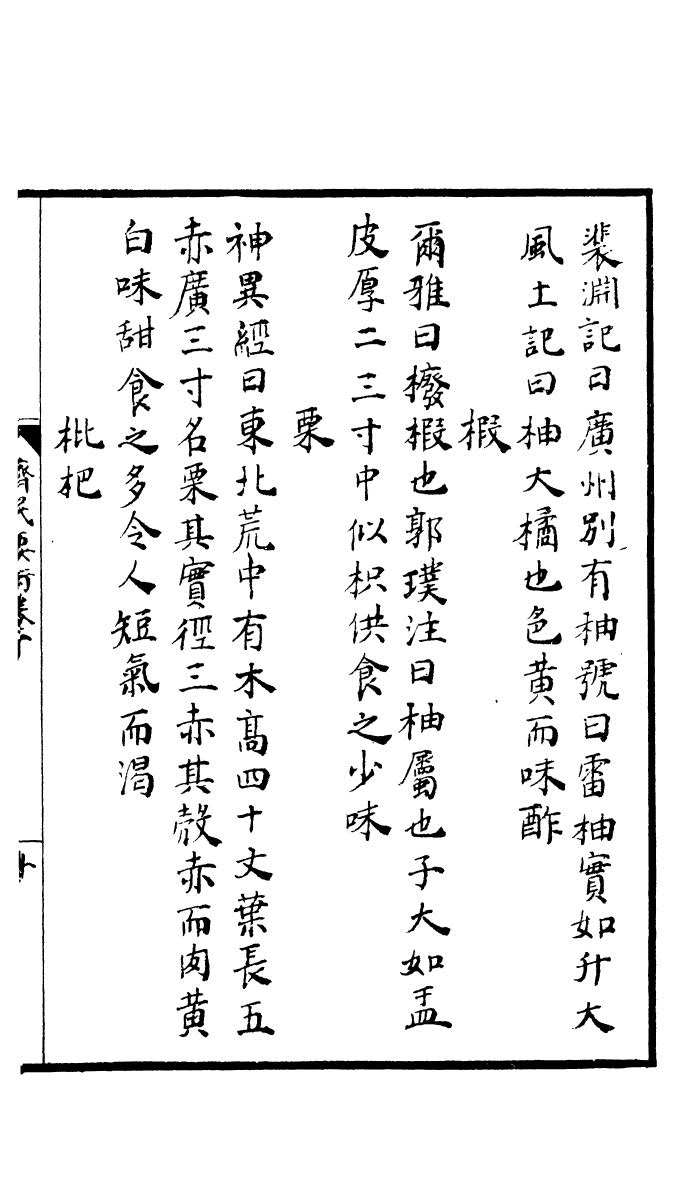 裴淵記曰廣州別有柚號曰雷柚實如升大
風土記曰柚大橘也色黃而味酢
椵
爾雅曰櫠椵也郭璞注曰柚屬也子大如盂
皮厚二三寸中似枳供食之少味
栗
神異經曰東北荒中有木高四十丈葉長五
赤廣三寸名栗其實徑三赤其殼赤而肉黃
白味甜食之多令人短氣而渴
枇杷
齊民要術卷十